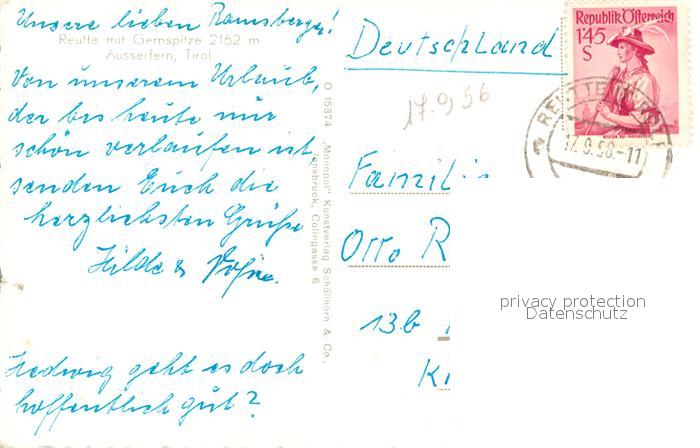 Unsere lieben Ramsberger!
Reutte mit Gernspitze 2162 m
Ausserfern, Tirol
Von unserem Urlaub,
der bis heute nur
schön verlaufen ist
senden Euch die
herzlichsten Grüße
Hilde &
Hedwig geht es doch
hoffentlich gut?
O 15374 „Monopol" Kunstverlag Schöllhorn & Co.,
Innsbruck, Colingasse 6
Deutschland
17.9.56
Republik Österreich
145
S
17.9.56.-11
Famili
Otto R
13b
privacy protection
Datenschutz